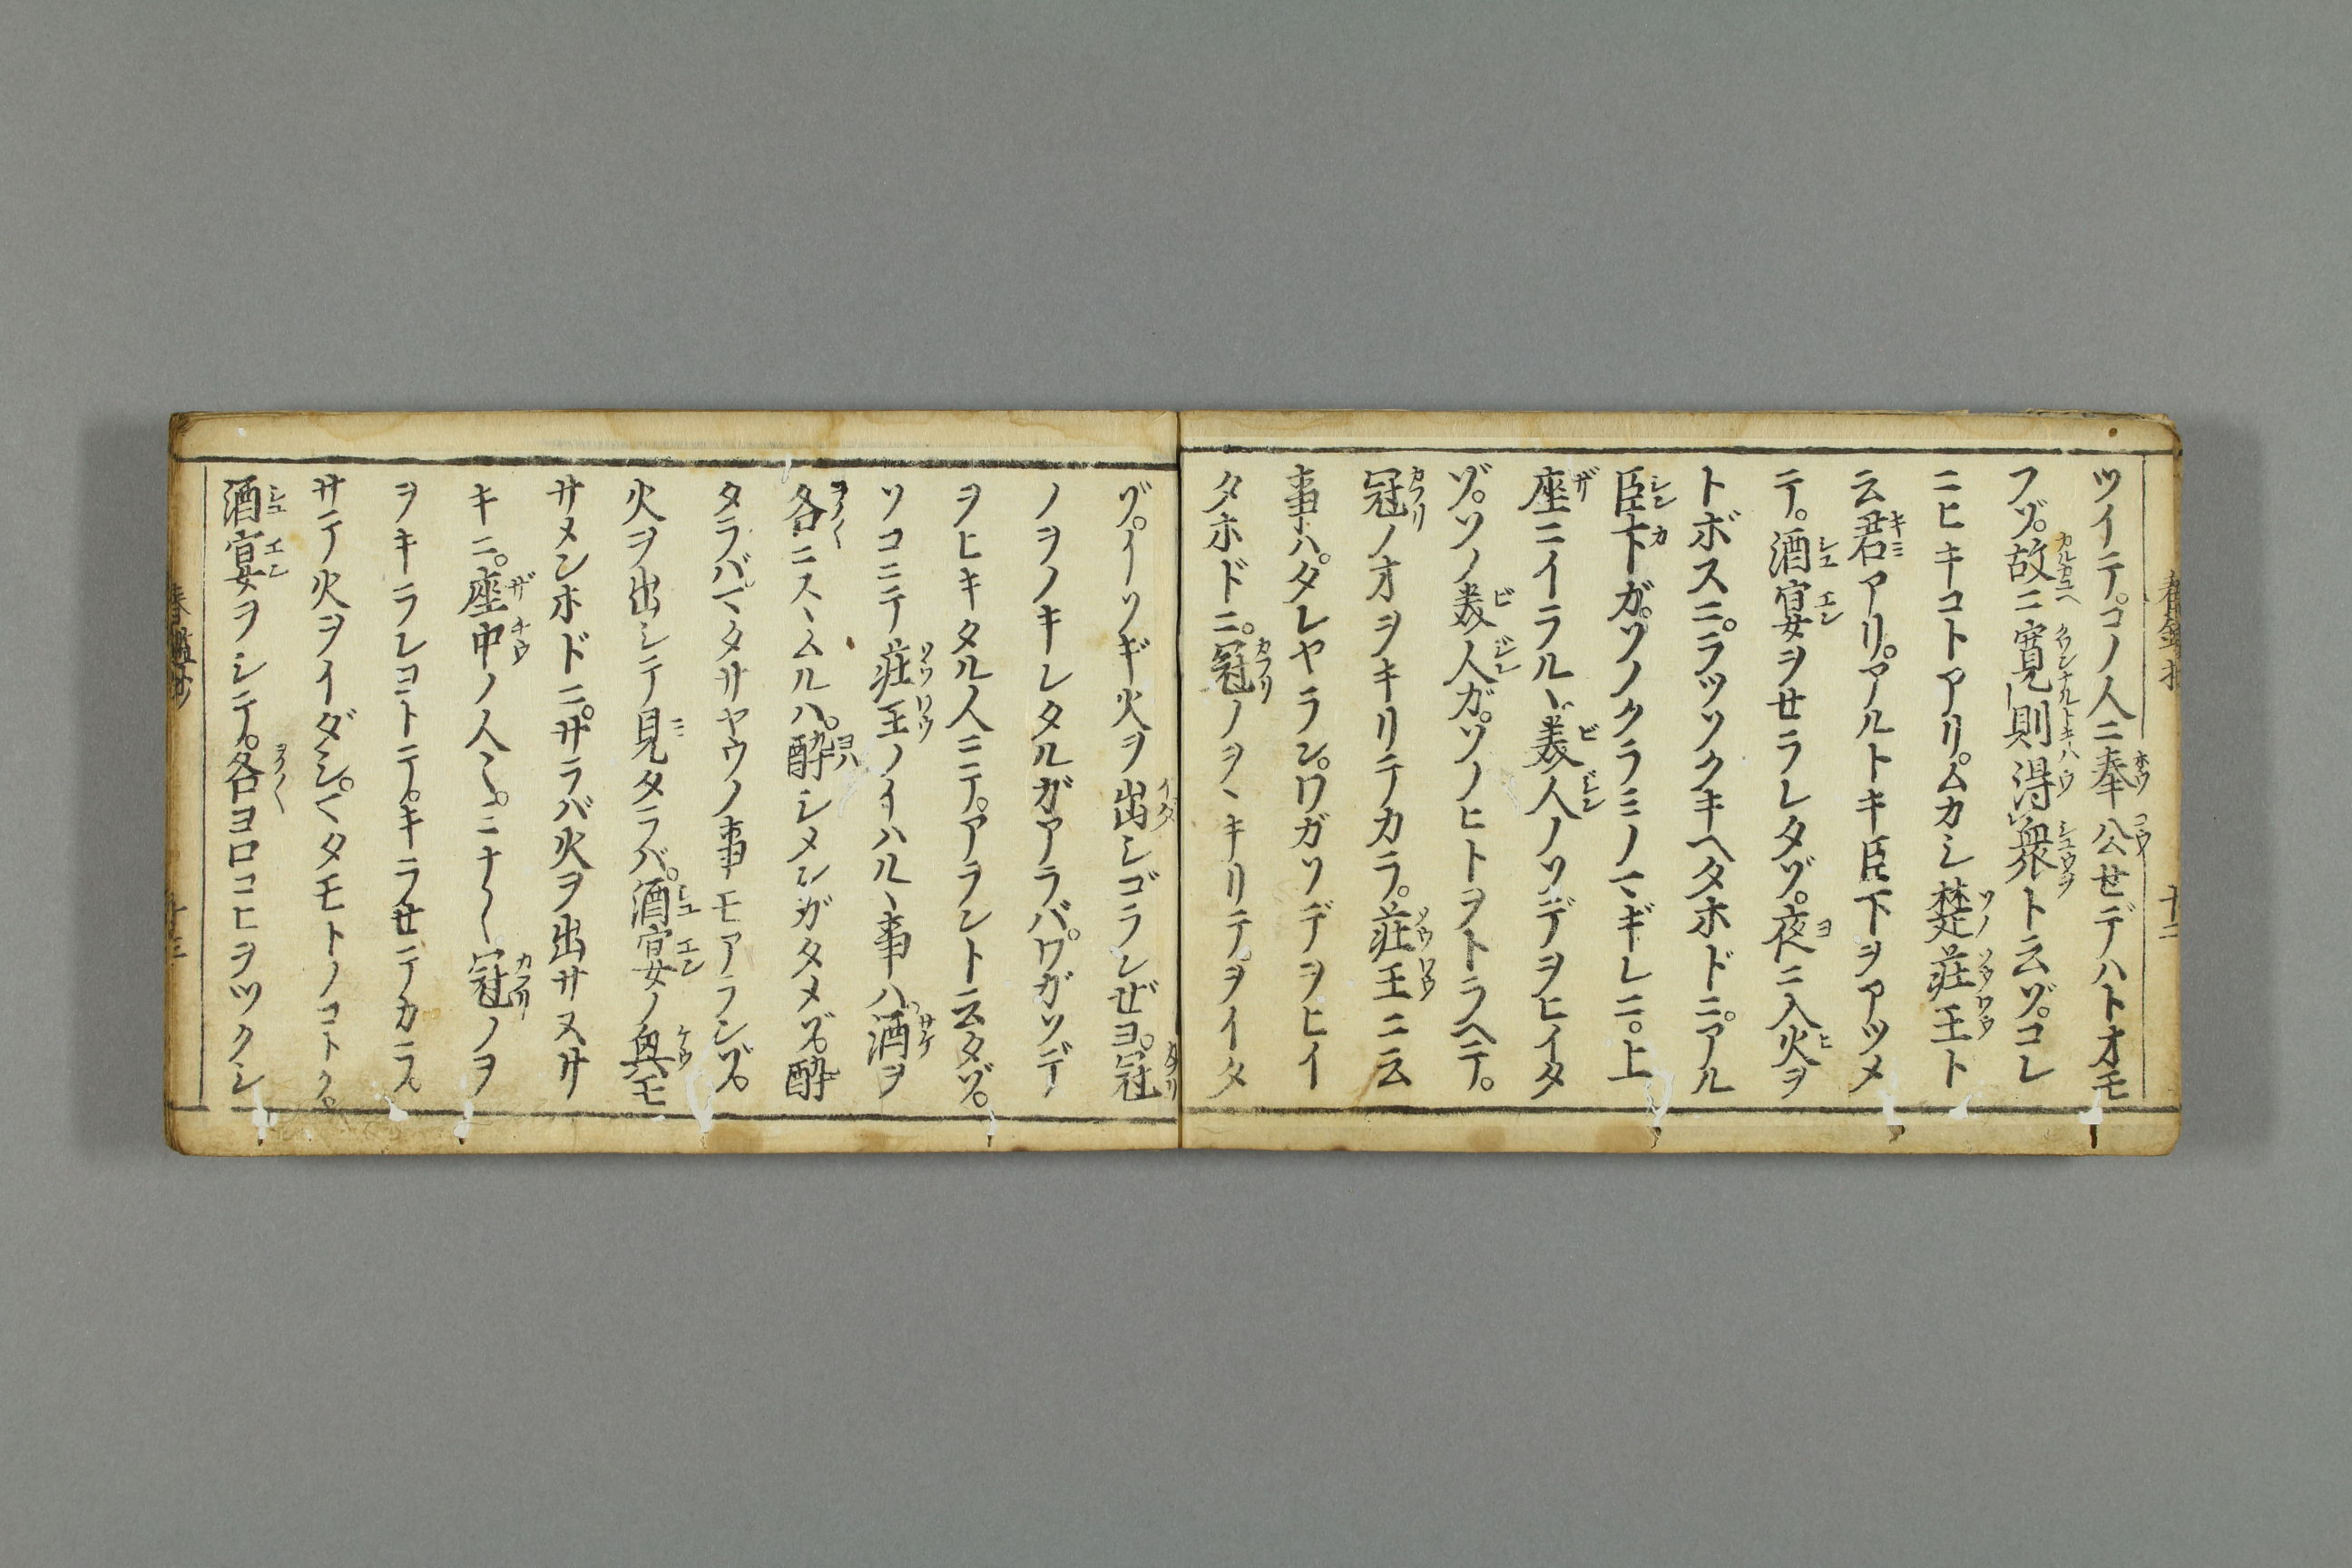 ツイテ。コノ人ニ奉公せデハトオモ
フゾ。故ニ寛則得衆ト云ゾ。コレ
ニヒキコトアリ。ムカシ楚荘王ト
云君アリ。アルトキ臣下ヲアツメ
テ。酒宴ヲせラレタゾ。夜ニ入火ヲ
トボスニ。ラツソクキヘタホドニ。アル
臣下ガ。ソノクラミノマギレニ。上
座ニイラルヽ美人ノソデヲヒイタ
ゾ。ソノ美人ガ。ソノヒトヲトラヘテ。
冠ノオヲキリテカラ。荘王ニ云
事ハ。タレヤラン。ワガソデヲヒイ
タホドニ。冠ノヲヽキリテ。ヲイタ
ゾ。イソギ火ヲ出シゴランぜヨ。冠
ノヲノキレタルガアラバ。ワガソデ
ヲヒキタル人ニテ。アラント云タゾ。
ソコニテ荘王ノイハルヽ事ハ。酒ヲ
各ニスヽムルハ。酔シメンガタメゾ。酔
タラバマタサヤウノ事モアランズ。
火ヲ出シテ見タラバ。酒宴ノ興モ
サメンホドニ。サラバ火ヲ出サヌサ
キニ。座中ノ人〻。ミナ〱冠ノヲ
ヲキラレヨトテ。キラせテカラ。
サテ火ヲイダシ。マタモトノコトク。
酒宴ヲシテ。各ヨロコヒヲツクシ